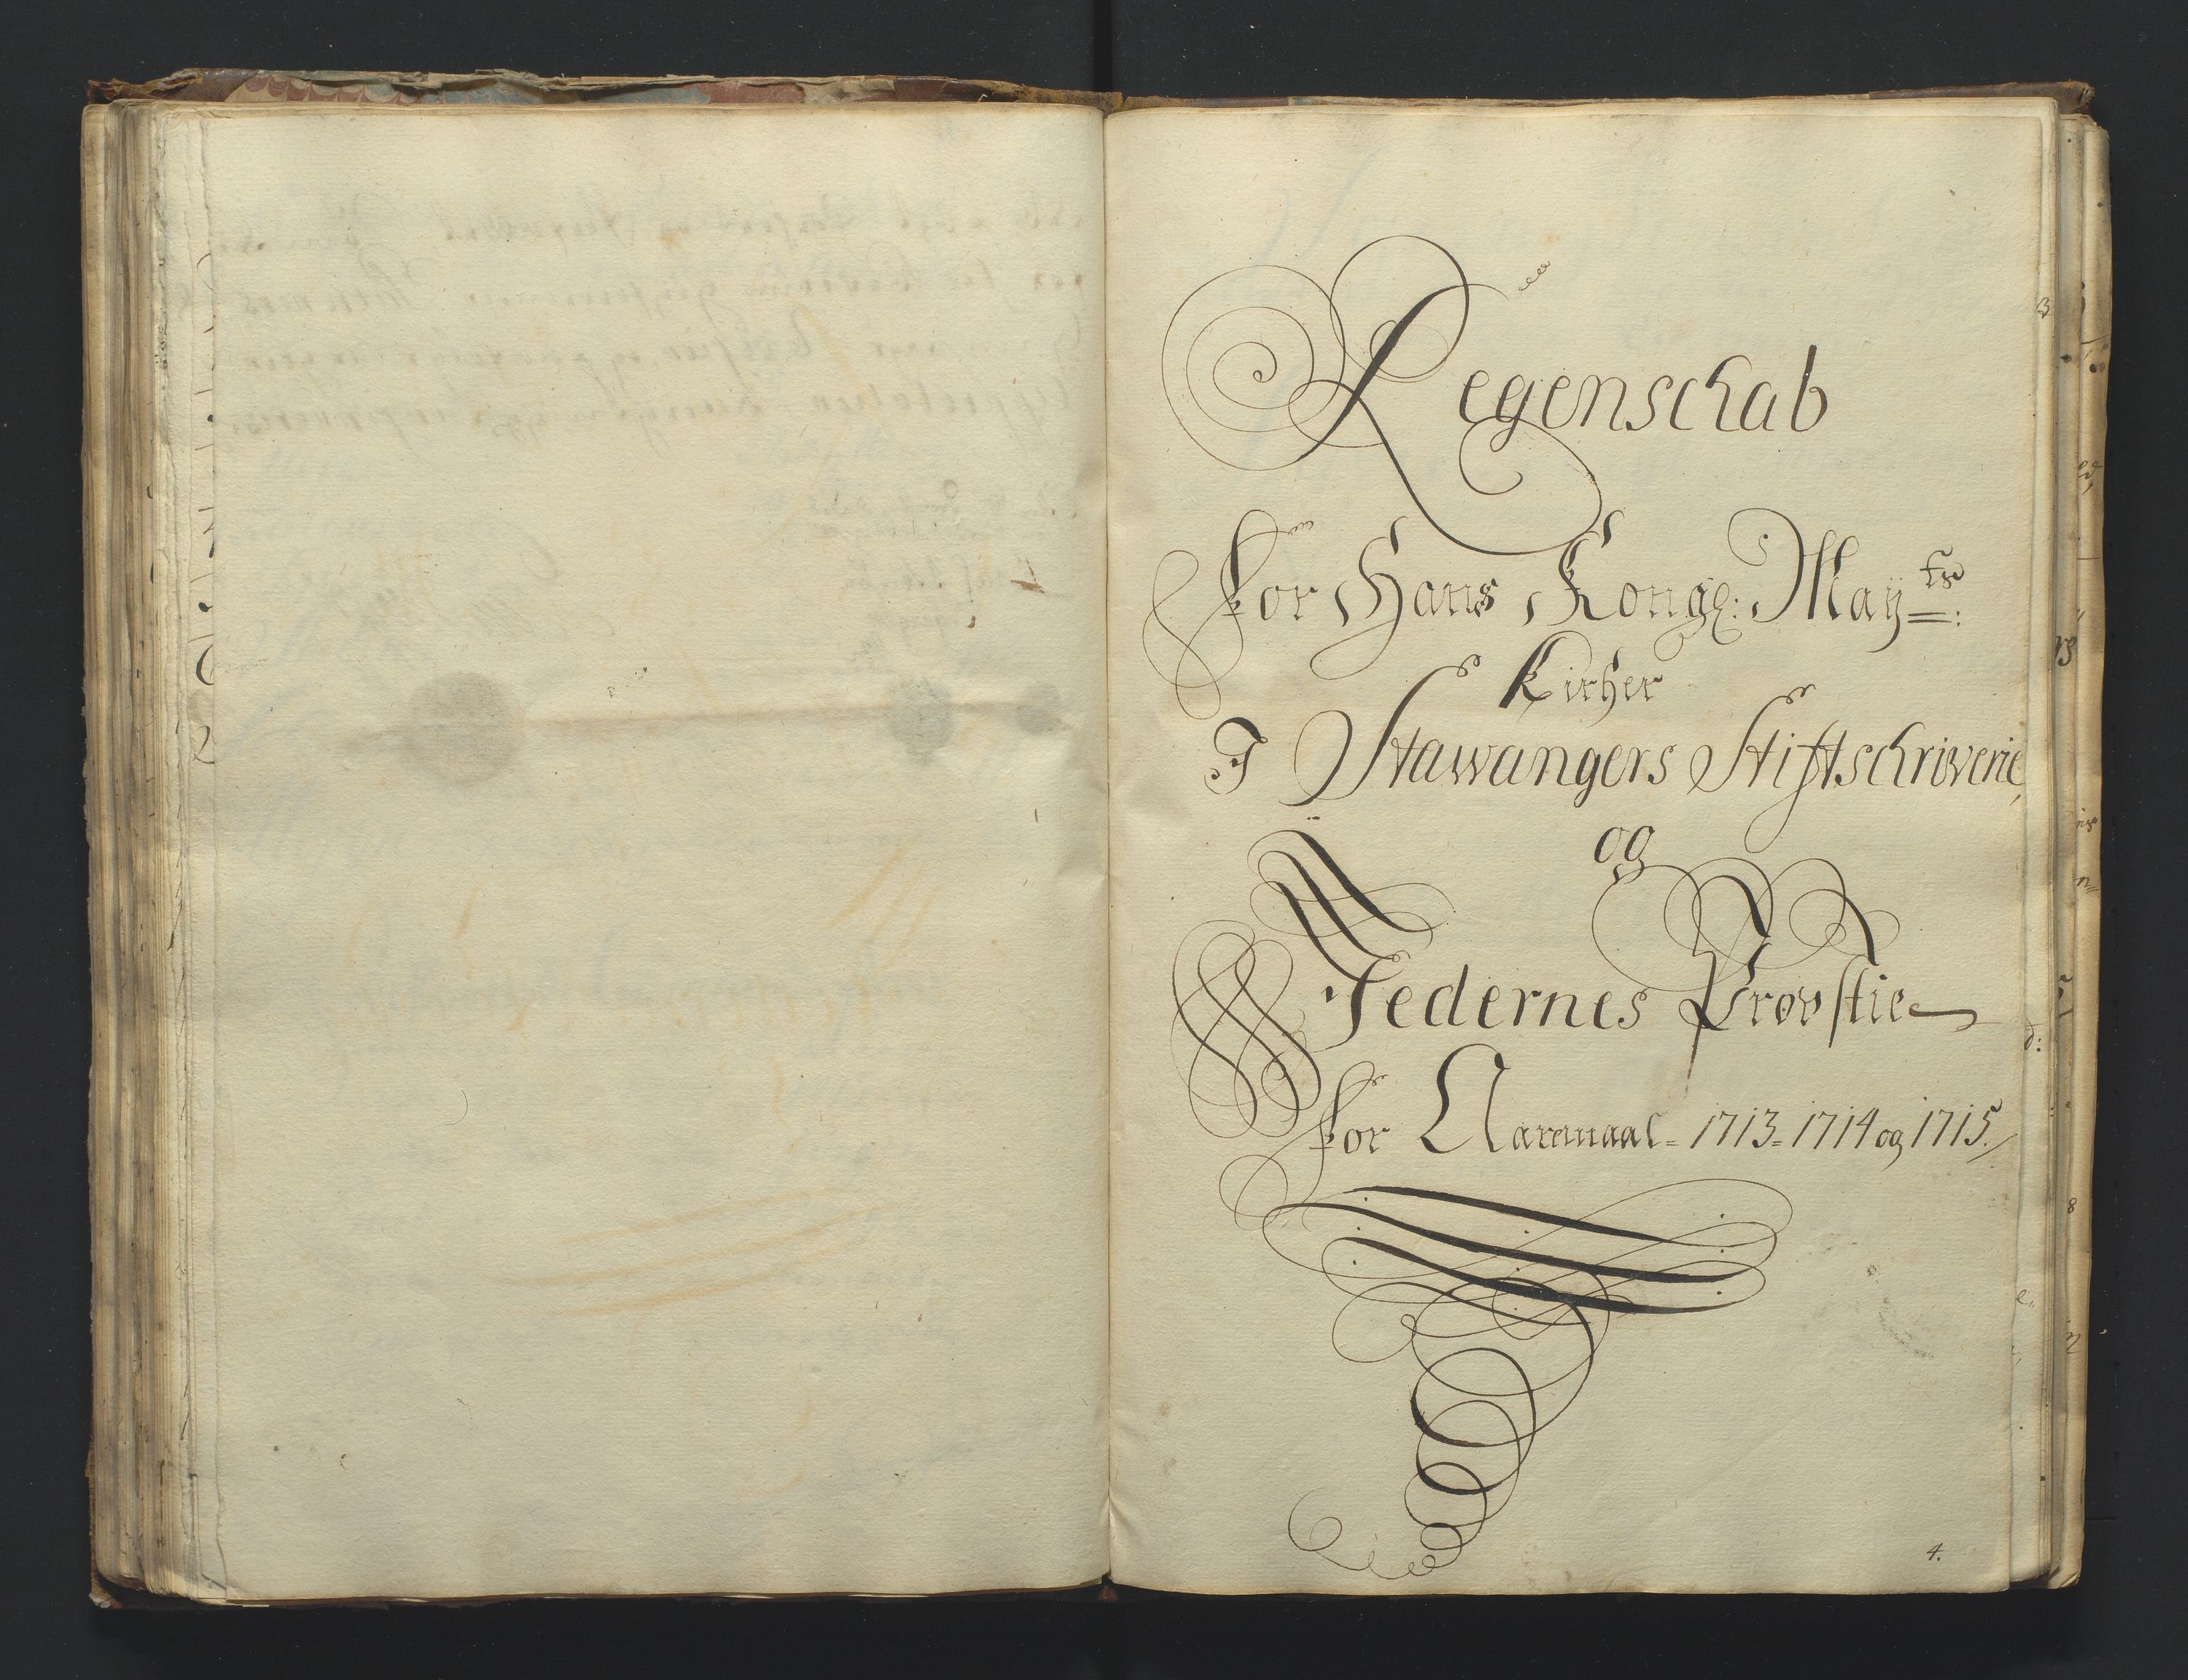 Regenschab
for Hans Kongl: May=ts:
Kircher
I Stawangers Stiftschriverie,
og
Jedernes Provstie
for Aaremaal= 1713= 1714 og 1715./
4.